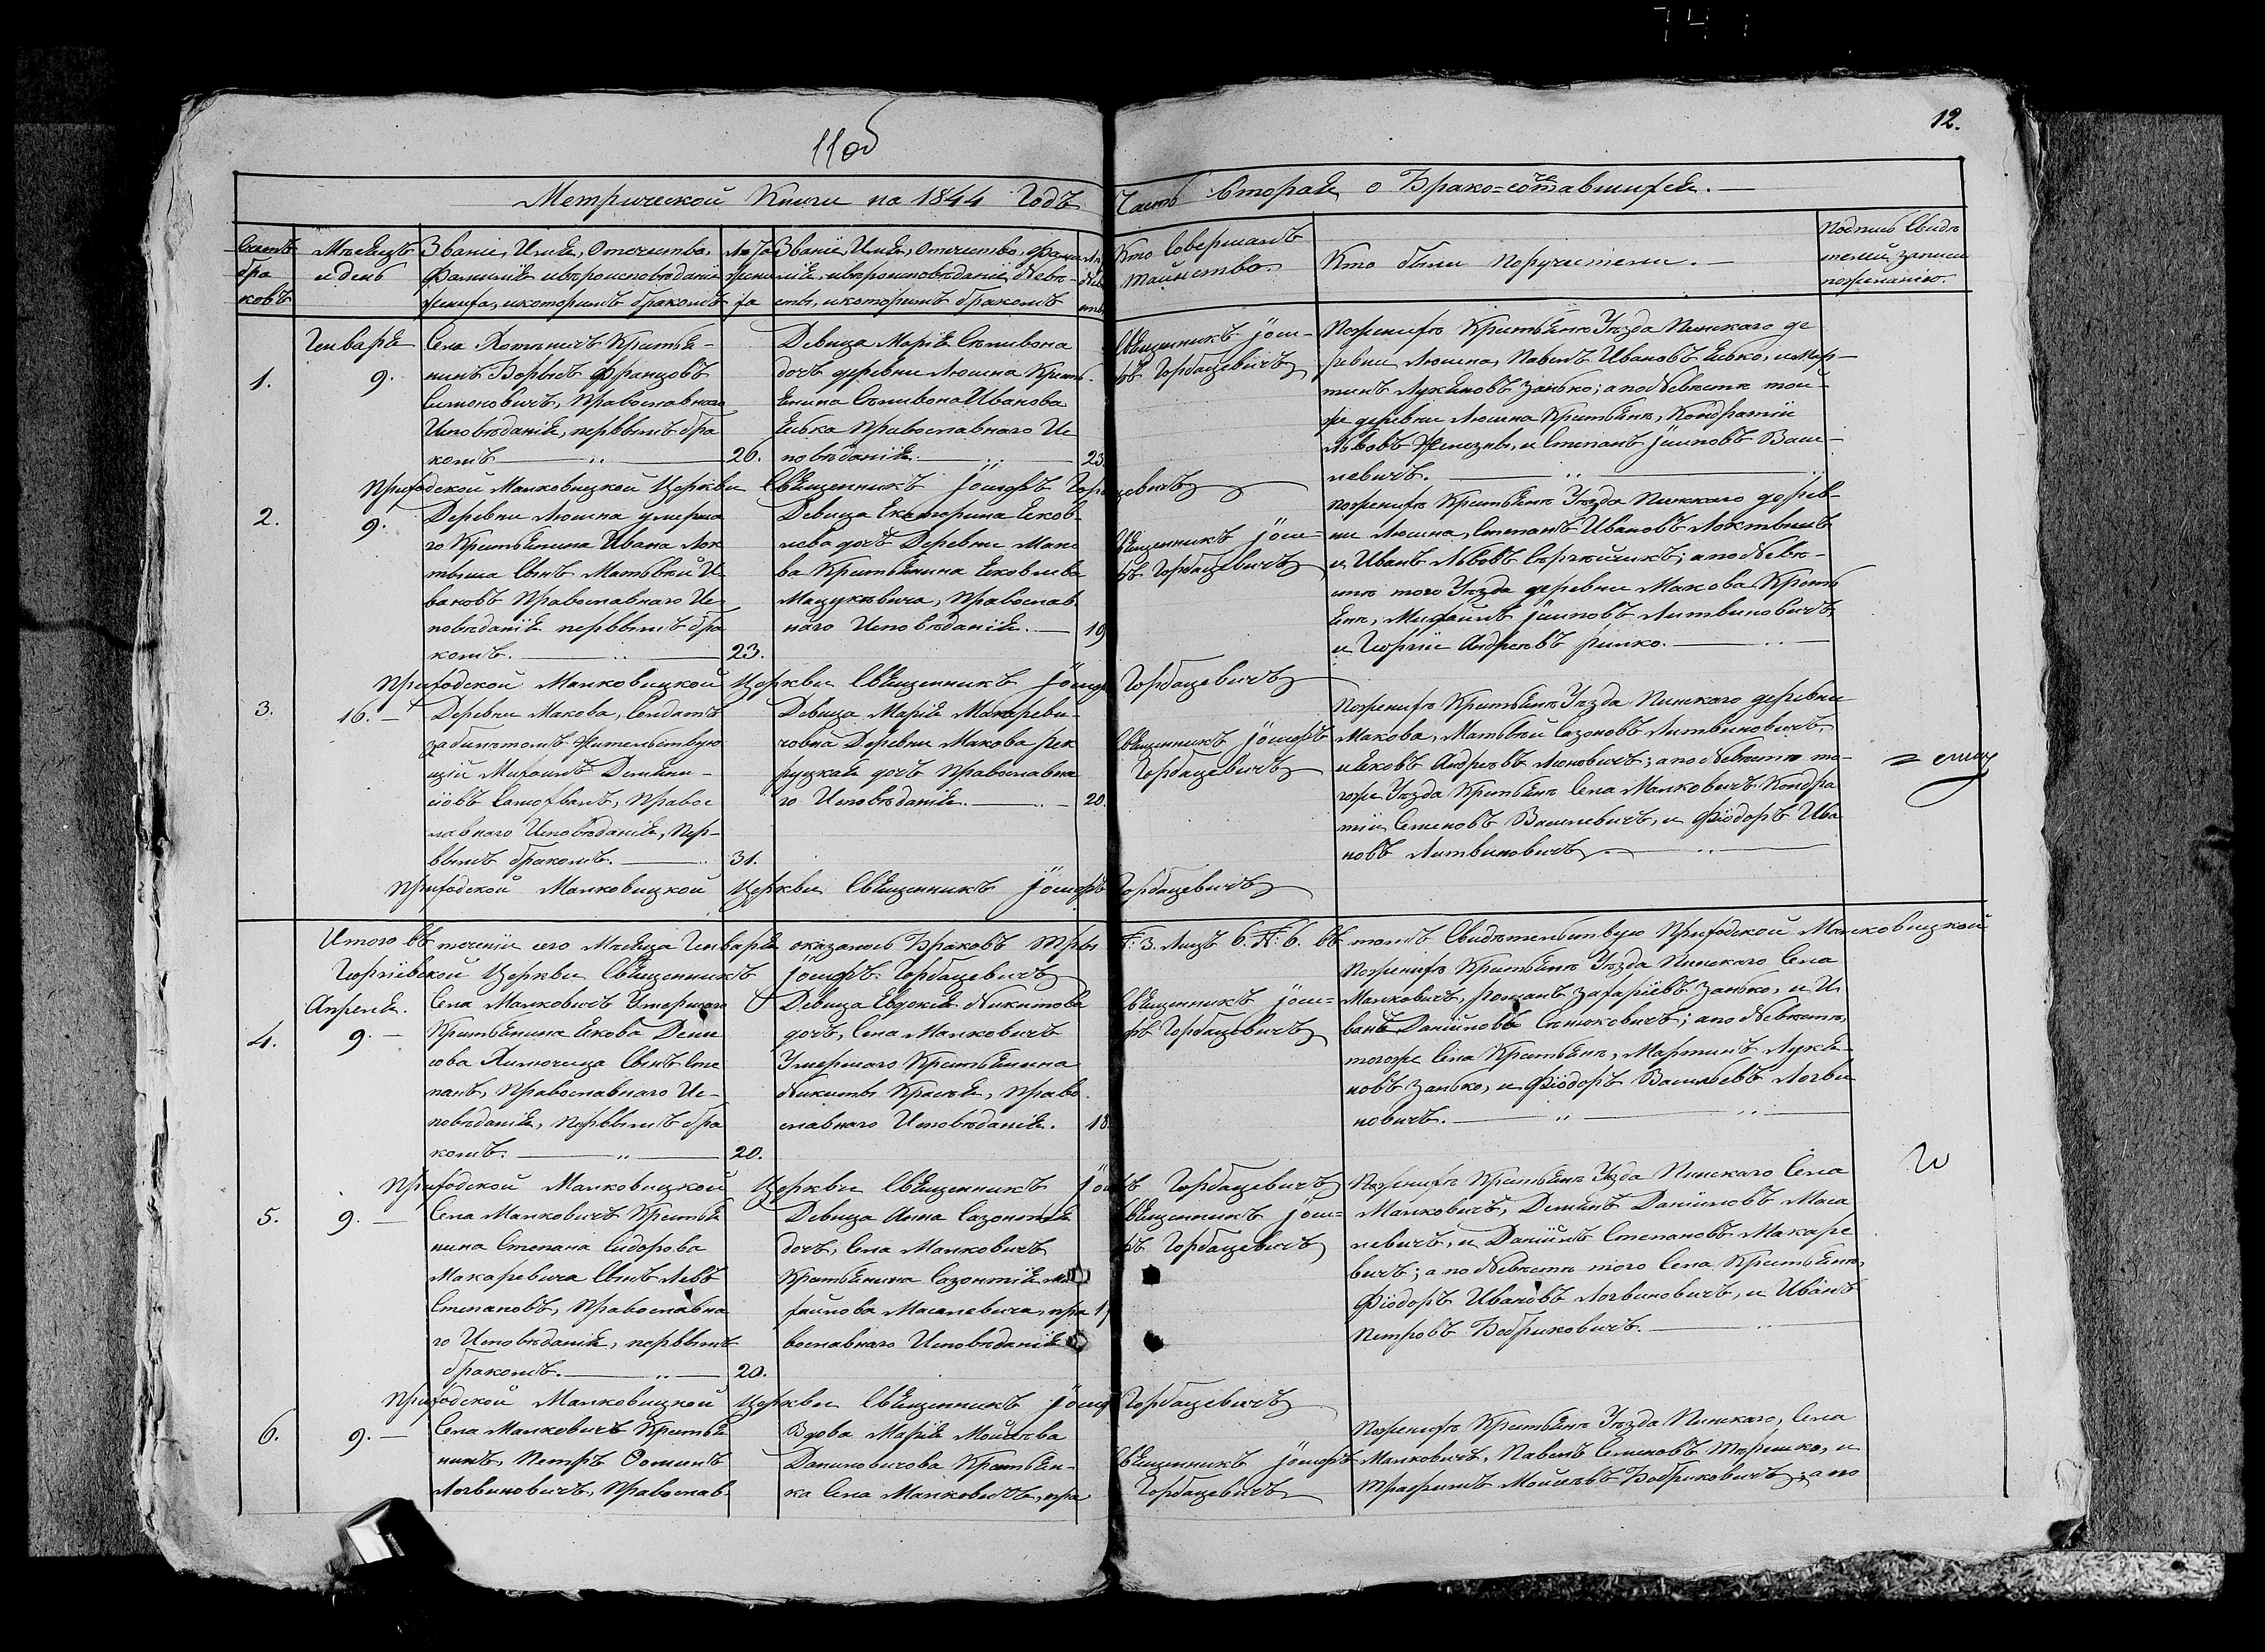 12.
11об
Метрической Книги на 1844 Годъ Часть Вторая о Брако-сочетавшихся.
Счетъ браковъ
Мѣсяцъ и день
Званіе, Имя, Отечество,
Фамилія и вѣроисповѣданіе
жениха, и которымъ бракомъ
Лѣта жениха
Званіе, Имя, Отечество, Фами
лія, и вѣроисповѣданіе Невѣ-
сты, и которымъ бракомъ
Кто Совершалъ
таинство.
Кто были Поручители.
Подпись Свидѣ
телей записи
по желанію.
Генваря
1.
9.
Села Хотыничъ Крестья-
нинъ Францовъ
Симоновичъ, Православнаго
Исповѣданія, первымъ бра
комъ 26.
Девица Марія Селивона
дочь деревни Люсина Крест
янина Селивона Иванова
Еська Православнаго Ис
повѣданія. 23.
Священникъ Іоси-
фъ Горбацевичъ
По женихѣ Крестьяне Уѣзда Пинскаго де
ревни Люсина, Павелъ Ивановъ Есько, и Мар-
тинъ Лукяновъ Занько; а по Невѣстѣ той-
же деревни Люсина Крестьяне, Кондратій
Львовъ и Степанъ Іосиповъ Васи-
левичъ.
Приходской Малковицкой Церкви Священникъ Іосифъ Горбацевичъ
2.
9.
Деревни Люсина умерша
го Крестьянина Ивана Лок
тыша Сынъ Матвей И
вановъ Православнаго Ис
повѣданія первымъ бра
комъ. 23.
Девица Екатерина Яков
лева дочь Деревни Мако
ва Крестьянина Яковлева
Мацукевича, Православ
наго Исповѣданія. 19
Священникъ Іоси-
фъ Горбацевичъ
По женихѣ Крестьяне Уѣзда Пинскаго дерев-
ни Люсина, Степанъ Ивановъ Локтышъ
и Иванъ Львовъ а по Невѣ-
стѣ того Уѣзда деревни Макова Кресть
яне, Михаилъ Іосиповъ Литвиновичъ,
и Георгій Андреевъ
Приходской Малковицкой Церкви Священникъ Іосифъ Горбацевичъ
3.
16.
Деревни Макова, Солдатъ
за билетомъ жительствую
щій Михаилъ
Правос
лавнаго Исповѣданія, Пер-
вымъ бракомъ. 31.
Девица Марія Макареви-
човна Деревни Макова рек
руцкая дочь Православна
го Исповѣданія. 20.
Священникъ Іосифъ
Горбацевичъ
По женихѣ Крестьяне Уѣзда Пинскаго деревни
Макова, Матвей Сазоновъ Литвиновичъ,
и Яковъ Андреевъ Леновичъ; а по Невѣстѣ то-
гоже Уѣзда Крестьяне Села Малковичъ Кондра
тій Семеновъ Василевичъ, и Фіодоръ Ива
новъ Литвиновичъ
Приходской Малковицкой Церкви Священникъ Іосифъ Горбацевичъ
Итого въ теченіи сего Мѣсяца Генваря оказалось Браковъ три №: 3. Лицъ 6. №: 6. въ томъ Свидѣтельствую Приходской Малковицкой
Георгіевской Церкви Священникъ Іосифъ Горбацевичъ
Апреля.
4.
9.
Села Малковичъ Умершаго
Крестьянина Якова Дени
сова Сынъ Сте
панъ, Православнаго Ис-
повѣданія, Первымъ бра
комъ. 20.
Девица Евдокія Никитова
дочь, Села Малковичъ
Умершаго Крестьянина
Никиты Право
славнаго Исповѣданія. 18.
Священникъ Іоси-
фъ Горбацевичъ
По женихѣ Крестьяне Уѣзда Пинскаго Села
Малковичъ, Романъ Захаріевъ Занько, и И
ванъ Даніиловъ а по Невѣстѣ,
тогоже Села Крестьяне, Мартинъ Лукя-
новъ Занько, и Фіодоръ Васильевъ Логви
новичъ.
Приходской Малковицкой Церкви Священникъ Іосифъ Горбацевичъ
5.
9.
Села Малковичъ Крестья
нина Степана Сидорова
Макаревича Сынъ Левъ
Степановъ, Православна
го Исповѣданія, первымъ
бракомъ. 20.
Девица Анна Сазонтія
дочь, Села Малковичъ
Крестьянина Сазонтія Ми
хаилова Масалевича, пра
вославнаго Исповѣданія
Священникъ Іоси-
фъ Горбацевичъ
По женихѣ Крестьяне Уѣзда Пинскаго Села
Малковичъ, Демянъ Даніиловъ Маса
левичъ, и Даніилъ Степановъ Макаре
вичъ; а по Невѣстѣ того Села Крестьяне,
Фіодоръ Ивановъ Логвиновичъ, и Иванъ
Петровъ Бобриковичъ.
Приходской Малковицкой Церкви Священникъ Іосифъ Горбацевичъ
6.
9.
Села Малковичъ Крестья
нинъ, Петръ Фоминъ
Логвиновичъ, Православ
Вдова Марія Моисѣева
Даниловичова Крестьян-
ка Села Малковичъ, пра
Священникъ Іосифъ
Горбацевичъ
По женихѣ Крестьяне Уѣзда Пинскаго, Села
Малковичъ, Павелъ Семеновъ Терешко, и
Трафимъ Моисѣевъ Бобриковичъ; а по